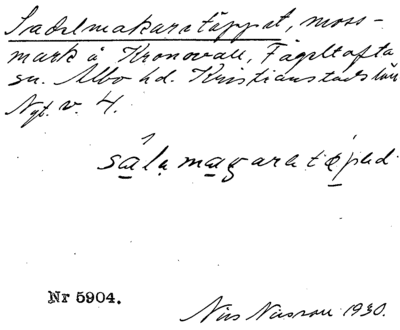 Sadelmakaretäppet, moss-
mark å Kronovall, Fågeltofta
sn. Albo hd. Kristianstads län
Nyt. v. 4.
sålamagaratäpad
Nr 5904.
Nils Nilsson 1930.